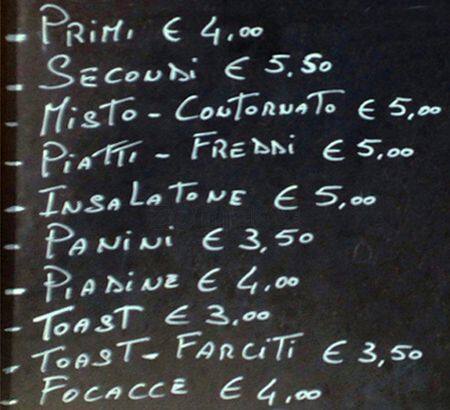 - PRIMI € 4,00
- SECONDI € 5,50
- MISTO - CONTORNATO € 5,00
- PIATTI - FREDDI € 5,00
- INSALATONE € 5,00
- PANINI € 3,50
- PIADINE € 4,00
- TOAST € 3,00
- TOAST - FARCITI € 3,50
- FOCACCE € 4,00